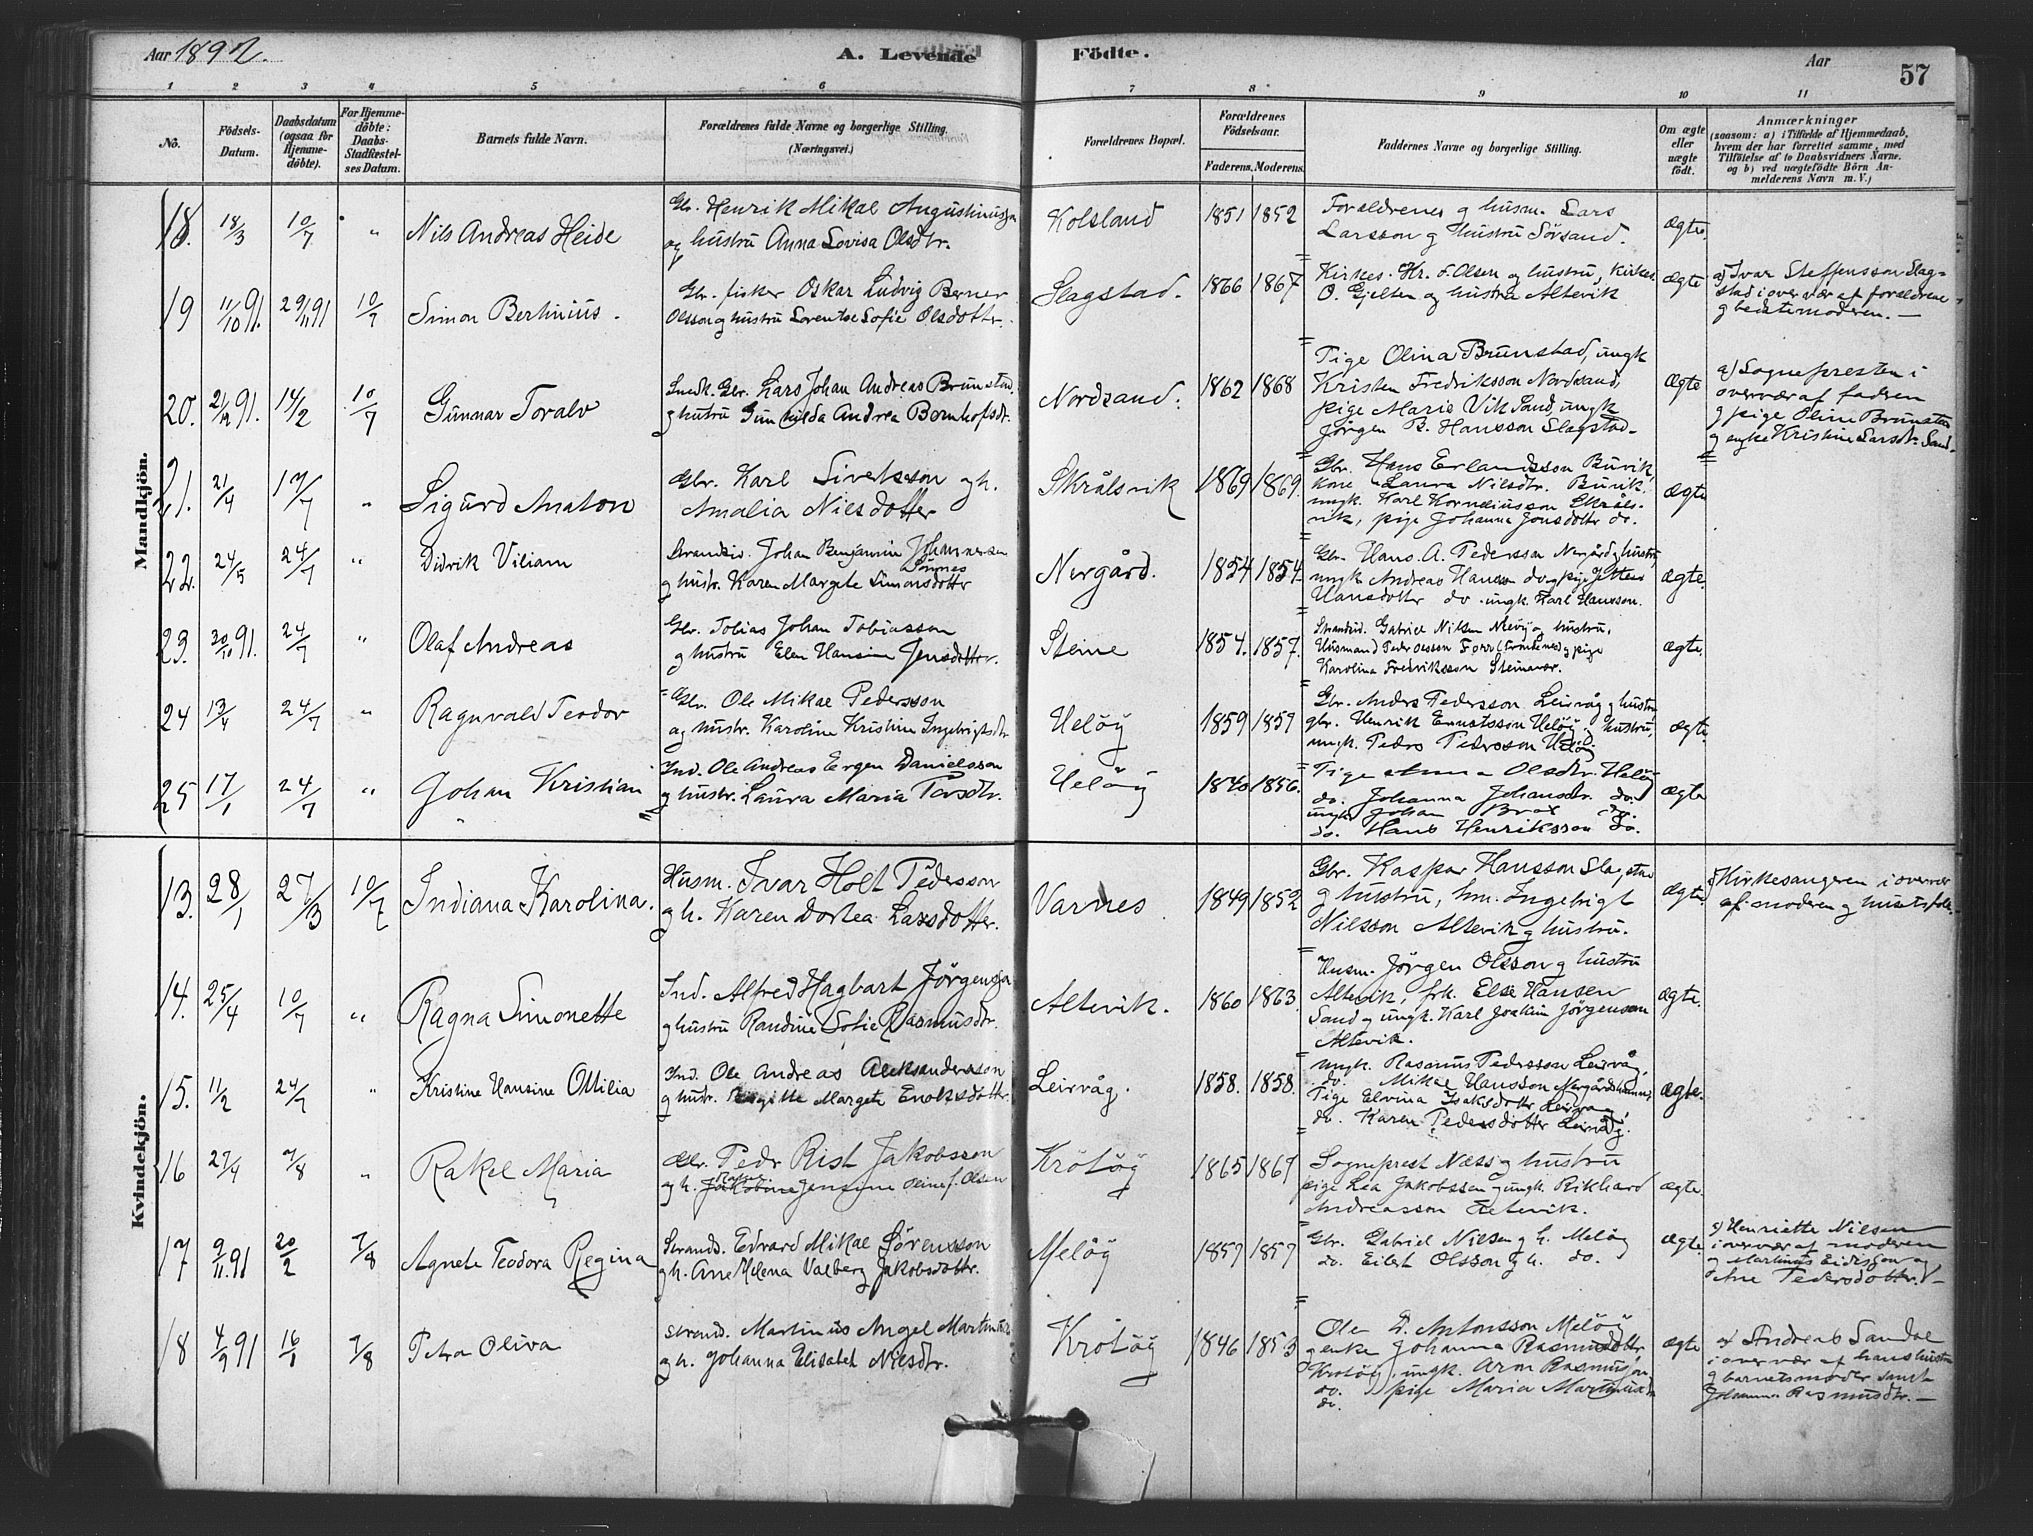 Aar 1892. A. Levende Födte. Aar 57
1 2 3 4 5 6 7 8 9 10 11
No. Födsels-Datum. Daabsdatum (ogsaa for Hjemmedöbte). For Hjemmedöbte: Daabs-Stadfæstelses Datum. Barnets fulde Navn. Forældrenes fulde Navne og borgerlige Stilling. (Næringsvei.) Forældrenes Bopæl. Forældrenes Födselsaar. Faderens. Moderens. Faddernes Navne og borgerlige Stilling. Om ægte eller uægte födt. Anmærkninger (saasom: a) i Tilfælde af Hjemmedaab, hvem der har forrettet samme, med Tilföielse af to Daabsvidners Navne. og b) ved uægtefödte Börn Anmelderens Navn m. V.)
Mandkjön.
18. 18/3 10/7 " Nils Andreas Heide
Gbr. Henrik Mikal Augustinussen
og hustru Anna Lovisa Olsdtr.
Kolsland 1851 1852
Forældrenes g husm. Lars
Larsson g hustru Sörsand.
ægte.
19 11/10 91. 29/11 91 10/7 Simon Bertinius.
Gbr. fisker Oskar Ludvig Berner
Olsson g hustru Lorentse Sofie Olsdotter.
Slagstad. 1866 1867
Kirkes. Hr. O. Olsen og hustru, Kirkes.
O. Gjelten og hustru Altevik
ægte
a) Ivar Steffensson Slag-
stad i overvær af forældrene
g bedstemoderen. —
20. 21/12 91. 14/2 10/7 Gunnar Toralv
Smed. Gbr. Lars Johan Andreas Brunstad
g hustru Gunhilda Andrea Bernhofsdtr.
Nordsand. 1862 1868
Pige Olina Brunstad, ungk
Kristen Fredriksson Nordsand,
pige Marie Vik Sand, ungk
Jörgen B. Hansson Slagstad.
ægte
a) Sognepresten i
overvær af faderen
g pige Oline Brunstad
g enke Kristine Larsdtr. Sand.
21. 21/4 17/7 " Sigurd Anaton
Gbr. Karl Sivertsson g h.
Amalia Nilsdotter
Skrålsvik 1869 1869.
Gbr. Hans Erlandsson Buvik,
kone Laura Nilsdtr. Buvik.
ungk. Karl Korneliusson Skråls-
vik, pige Johanna Jonsdotter do.
ægte
22. 24/5 24/7 " Didrik Viliam
Strandsid. Johan Benjamin Johannesen
Sönnes
g hustr. Karen Margete Simonsdotter
Nergård. 1854 1854.
Gbr. Hans A. Pedersson Nergård g hustru,
ungk Andreas Hansen do g pige Jettine
Hansdotter do. ungk. Karl Hansson.
ægte.
23. 30/10 91. 24/7 " Olaf Andreas
Gbr. Tobias Johan Tobiasson
g hustru Elen Hansine Jensdotter.
Steine 1854. 1857.
Strandsid. Gabriel Nilsen g hustru,
Husmand Peder Olsson Forr g pige
Karolina Fredriksson Steinavær.
ægte.
24 13/4 24/7 " Ragnvald Teodor
Gbr. Ole Mikal Pedersson
og hustr. Karoline Kristine Ingebrigtsdtr.
Helöy 1859 1859
Gbr. Anders Pedersson Leirvåg g hustru,
gbr. Henrik Ernstsson Helöy g hustru,
ungk. Peder Pedersson Helöy
ægte.
25 17/1 24/7 " Johan Kristian
Ind. Ole Andreas Ergen Danielsson
g hustr. Laura Maria Persdtr.
Helöy 1840 1856.
Pige Anna Olsdtr. Helöy
do. Johanna Johansdtr. do.
ungk Johan Brox do.
do. Hans Henriksson do.
ægte
Kvindekjön.
13. 28/1 27/3 10/7 Indiana Karolina.
Husm. Ivar Holt Pedersson
g h. Karen Dortea Larsdotter.
Varnes 1849 1852
Gbr. Kaspar Hansson Slagstad
g hustru, hm. Ingebrigt
Nilsson Altevik g hustru.
ægte.
a) Kirkesangeren i overvær
af moderen g husetsfolk.
14. 25/4 10/7 " Ragna Simonette
Ind. Alfred Hagbart Jörgensson
g hustru Randine Sofie Rasmusdtr.
Altevik. 1860 1863.
Husm. Jörgen Olsson g hustru
Altevik, frk. Else Hansen
Sand g ungk. Karl Joakim Jörgensen
Altevik.
ægte.
15. 11/2 24/7 " Kristine Hansine Ottilia
Ind. Ole Andreas Aleksandersson
g hustr. Birgitte Margete Enoksdotter.
Leirvåg. 1858. 1858.
ungk. Rasmus Pedersson Leirvåg,
do. Mikal Hansson Nergårdshamn,
Pige Elvina Isaksdotter Leirvåg,
do. Karen Pedersdotter Leirvåg.
ægte.
16 27/4 7/8 " Rakel Maria
Gbr. Peder Rist Jakobsson
g h. Jakobine Jensine Seine f. Olsen
Krötöy 1865 1867
Sogneprest Næss g hustru
pige Lea Jakobsson g ungk. Rikhard
Andreasson Eltevik.
ægte.
17 9/11 91 20/2 7/8 Agnete Teodora Regina
Strands. Edvard Mikal Sörensson
g h. Ane Helena Valberg Jakobsdotter.
Melöy 1857 1857
Gbr. Gabriel Nilsen g h. Melöy
do. Eilert Olsson g h. do.
ægte
a) Henriette Nilsen
i overvær af moderen
g Martinus Eidissen g
Ane Pedersdotter. —
18 4/9 91 16/1 7/8 Petra Oliva
Strand. Martinus Angel Martinussen
g h. Johanna Elisabet Nilsdtr.
Krötöy 1846 1853
Ole D. Antonsson Melöy
g enke Johanna Rasmusdotter
Krötöy, ungk. Aron Rasmusson
do. pige Maria Martinusdtr.
do.
ægte
a) Andreas Sandal
i overvær af hans hustru
g barnets moder samt
Johanna Rasmusdtr. —